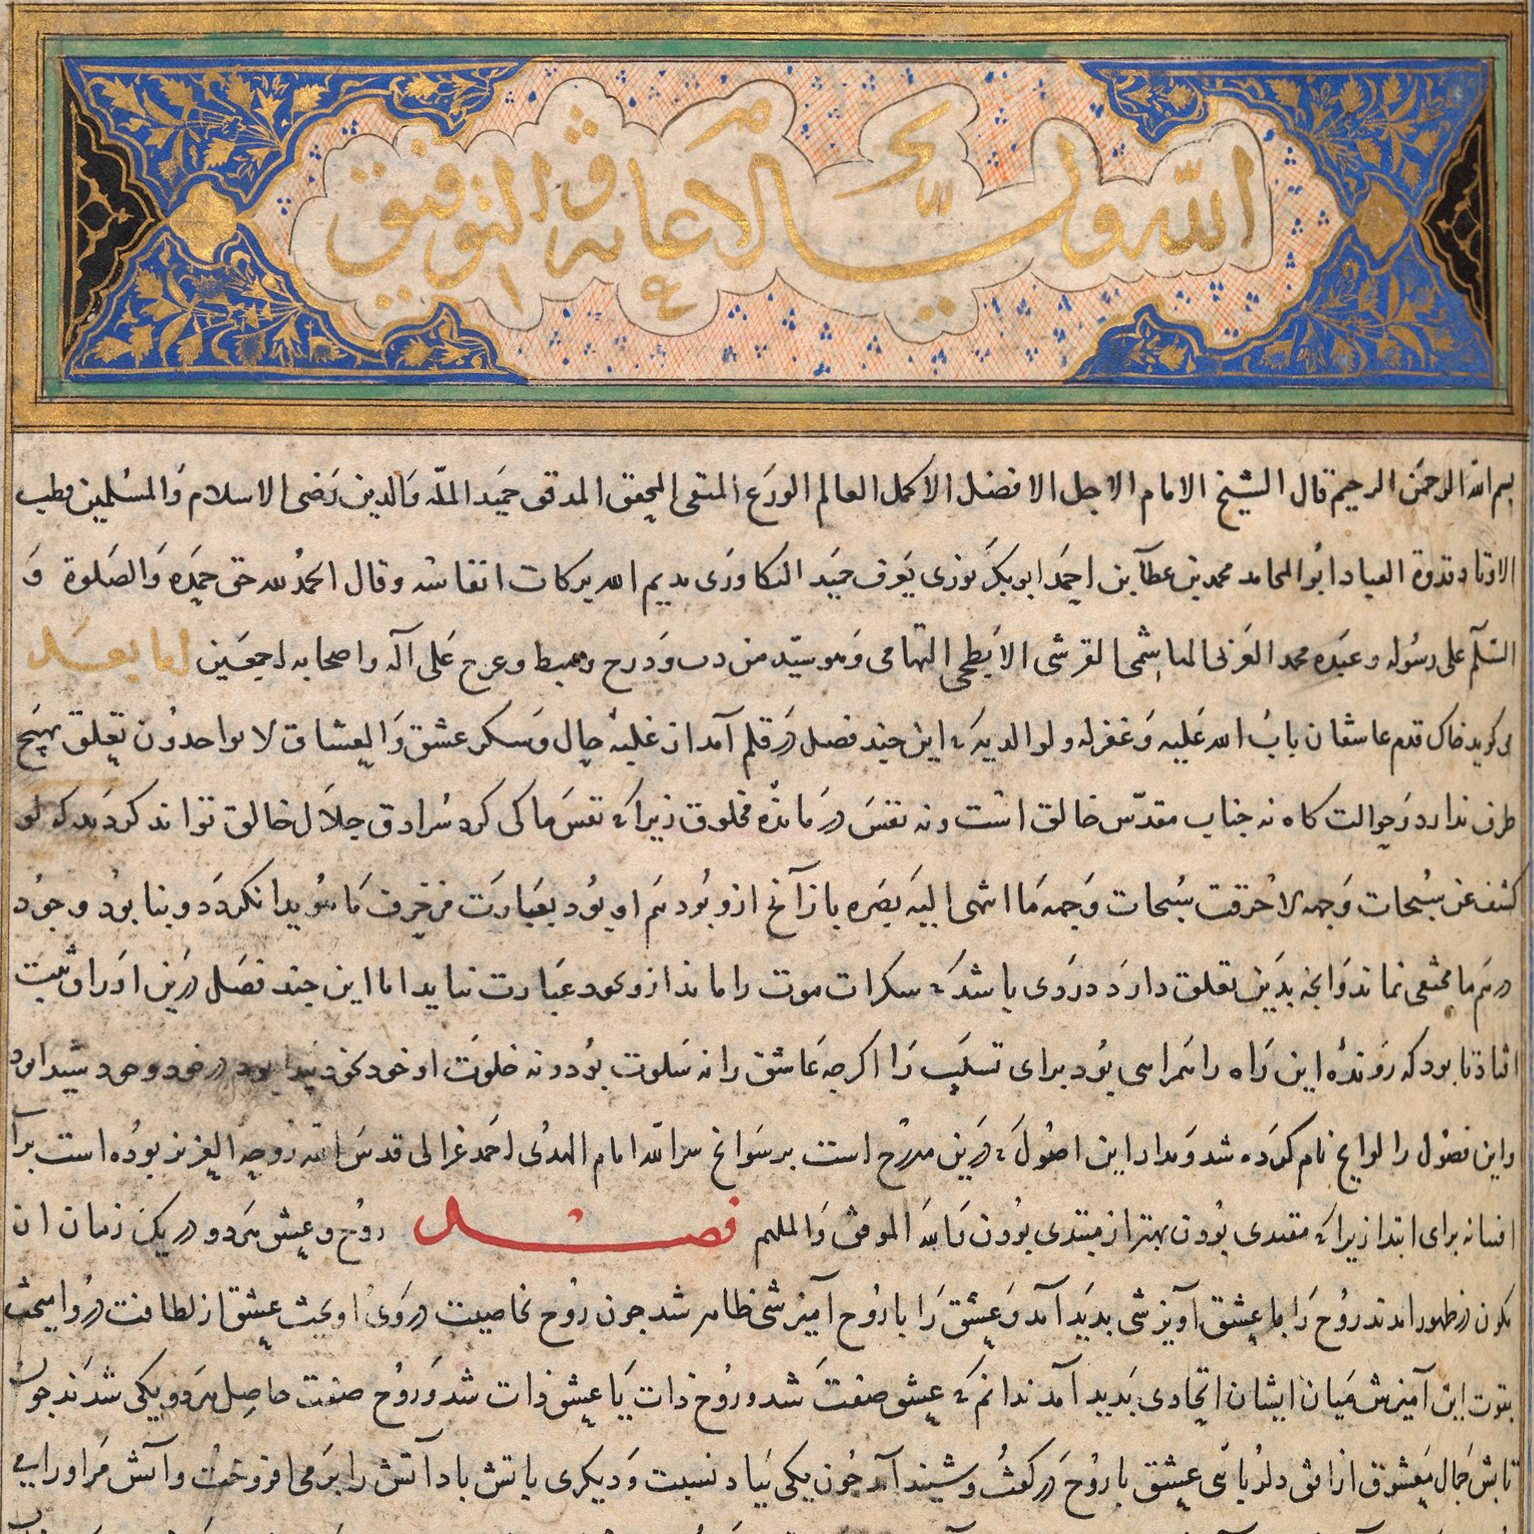 الله ولي الاعانة والتوفيق
بسم الله الرحمن الرحيم قال الشيخ الامام الاجل الافضل الاكمل العالم الورع المتقى المحقق المدقق حميد الملة والدين رضى الاسلام والمسلمين قطب
الاوتاد قدوة العباد ابو المحامد محمد بن عطا بن احمد ابو بكر يعرف حميد الناكاورى يديم الله بركات انفاسه وقال الحمد لله حق حمده والصلوة و
السلم على رسوله وعبده محمد العربى الهاشمى القرشى الابطحى التهامى وهو سيد من دب ودرج وهبط وعرج على آله واصحابه اجمعين اما بعد
مى كويد خاك قدم عاشقان تاب الله عليه و غفر له ولوالديه كه اين چند فصل در قلم آمد از غلبه حال و سكر عشق والعشاق لا يواخدون تعلق بهيچ
طرف ندارد در حوالت كاه نه جناب مقدس خالق است ونه نفس در مانده مخلوق زيرا كه نفس ما كى كرد سرادق جلال خالق تواند كرديد كه لو
كشف عن سبحات وجهه لاحرقت سبحات وجهه ما انتهى اليه بصره باز آنچ ازو بود هم او بود بعبارت مزخرف ما هويدا نكردد و بنابود وجود
درهم ما مختفى نماند وانچه بدين تعلق دارد دردى باشد كه سكرات موت را ماند ازو بخود عبارت نيايد اما اين چند فصل درين اوراق ثبت
افتاد تا بود كه رونده اين راه را همراهى بود براى تسلى را اكرچه عاشق را نه سلوت بود ونه خلوت او خود بخود شيدا بود در خود وخود شيدا بود
واين فصول را لوايح نام كرده شد و مدار اين اصول كه درين مدرج است بر سوانح سر الله امام الهدى احمد غزالى قدس الله روحه العزيز بوده است برا
افسانه براى ابتدا زيرا كه مقتدى بودن بهتر از مبتدى بودن بالله الموفق والملهم فصل روح وعشق هردو در يك زمان ان
بكون در ظهور امدند روح را با عشق آويزشى بديد آمد و عشق را با روح آميزشى ظاهر شد چون روح بخاصيت در وى اويخت عشق از لطافت درو اميخت
بقوت اين آميزش ميان ايشان اتحادى بديد آمد ندانم كه عشق صفت شد و روح ذات يا عشق ذات شد و روح صفت حاصل هردو يكى شدند چون
تابش جمال معشوق از افق دلربائى عشق با روح در كفت و شنيد آمد چون يكى بباد نسبت و ديكرى باتش باد آتش را بر مى افروخت و آتش مر اورا